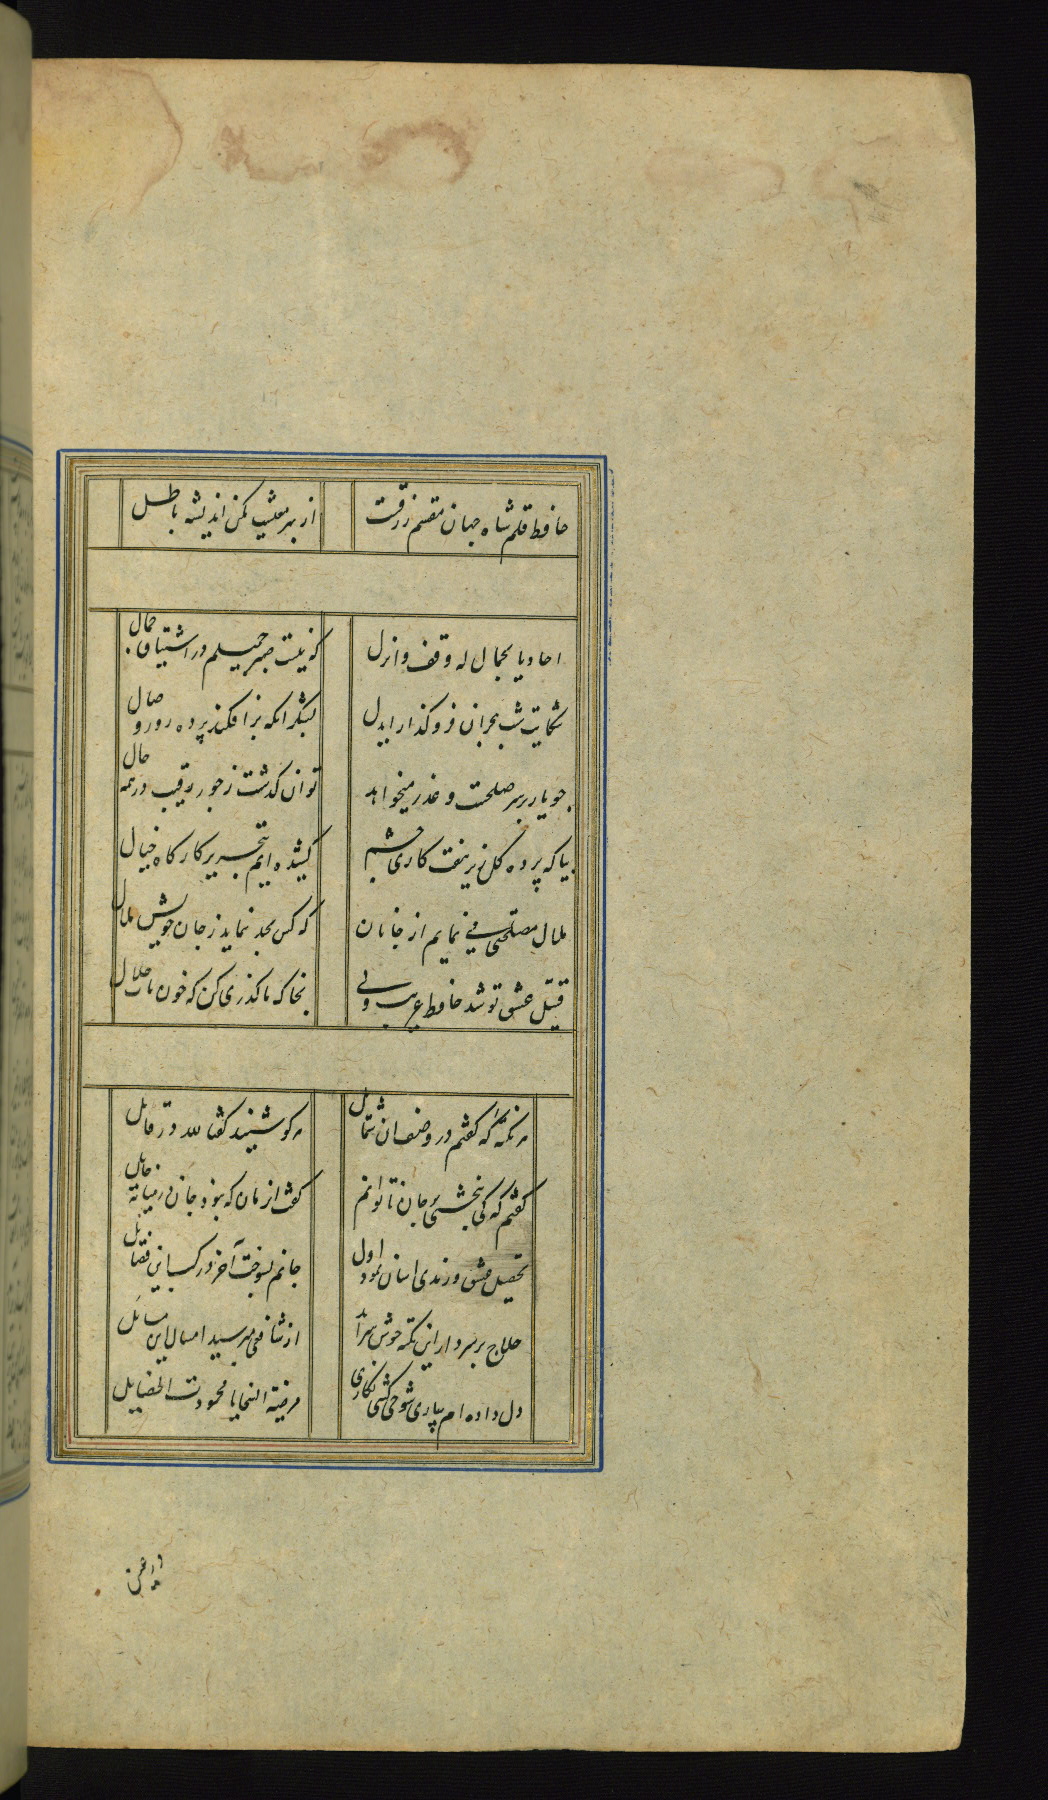 حافظ قلم شاه جهان مقسم رزقست از بهر معیشت مکن اندیشه باطل
احادیا بجمال له وقف وانزل که نیست صبر جمیلم در اشتیاق جمال
شکایت شب هجران فروگذار ایدل بشکر انکه برافکند پرده روز وصال
چو یار بر سر صلحست و عذر میخواهد توان گذشت ز جور رقیب در همه حال
بیا که پرده گلریز هفت کاری چشم کشیده ایم بتحریر کارگاه خیال
ملال مصلحتی می نمایم از جانان که کس بجد ننماید ز جان خویش ملال
قتیل عشق تو شد حافظ غریب ولی بخاک ما گذری کن که خون مات حلال
هر نکته که گفتم در وصف ان شمائل هر کو شنید گفتا لله در قائل
گفتم که کی ببخشی بر جان ناتوانم گفت ان زمان که نبود جان در میانه حائل
تحصیل عشق و رندی اسان نمود اول جانم بسوخت آخر در کسب این فضائل
حلاج بر سر دار این نکته خوش سراید از شافعی مپرسید امثال این مسائل
دل داده ام بیاری شوخی کشی نگاری مرضیة السجایا محمودة الخصایل